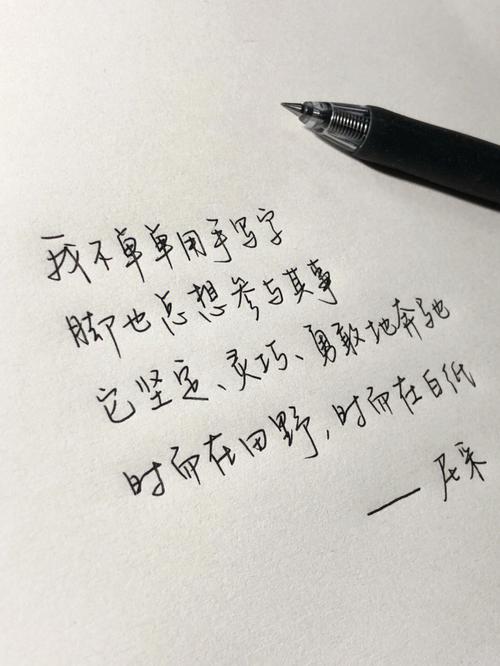 我不单单用手写字
脚也总想参与其事
它坚定、灵巧、勇敢地奔驰
时而在田野，时而在白纸
——尼采